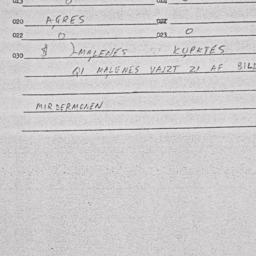 020 AGRES 022
022 0 023 0
030 MALENES KUPKTES
QI MALENES VAIZT ZI AF BILD
MIRDERMONEN